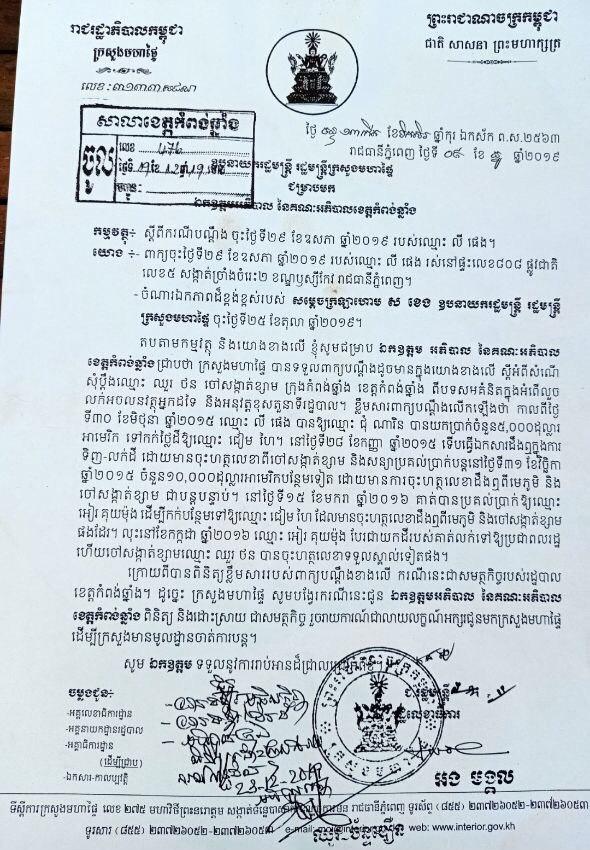 ព្រះរាជាណាចក្រកម្ពុជា
ជាតិ សាសនា ព្រះមហាក្សត្រ
រាជរដ្ឋាភិបាលកម្ពុជា
ក្រសួងមហាផ្ទៃ
លេខ:
សាលាខេត្តកំពង់ឆ្នាំង
ចូល
លេខ 476
ថ្ងៃទី
ថ្ងៃ ខែ ឆ្នាំកុរ ឯកស័ក ព.ស.២៥៦៣
រាជធានីភ្នំពេញ ថ្ងៃទី ០៩ ខែ ឆ្នាំ២០១៩
ឧបនាយករដ្ឋមន្ត្រី រដ្ឋមន្ត្រីក្រសួងមហាផ្ទៃ
ជម្រាបមក
ឯកឧត្តមអភិបាល នៃគណៈអភិបាលខេត្តកំពង់ឆ្នាំង
កម្មវត្ថុ÷ ស្តីពីករណីបណ្តឹង ចុះថ្ងៃទី២៩ ខែឧសភា ឆ្នាំ២០១៩ របស់ឈ្មោះ លី ផេង។
យោង ÷ - ពាក្យចុះថ្ងៃទី២៩ ខែឧសភា ឆ្នាំ២០១៩ របស់ឈ្មោះ លី ផេង រស់នៅផ្ទះលេខ៨០៨ ផ្លូវជាតិ
លេខ៥ សង្កាត់ច្រាំងចំរេះ២ ខណ្ឌឫស្សីកែវ រាជធានីភ្នំពេញ។
- ចំណារឯកភាពដ៏ខ្ពង់ខ្ពស់របស់ សម្តេចក្រឡាហោម ស ខេង ឧបនាយករដ្ឋមន្ត្រី រដ្ឋមន្ត្រី
ក្រសួងមហាផ្ទៃ ចុះថ្ងៃទី២៥ ខែតុលា ឆ្នាំ២០១៩។
តបតាមកម្មវត្ថុ និងយោងខាងលើ ខ្ញុំសូមជម្រាប ឯកឧត្តម អភិបាល នៃគណៈអភិបាល
ខេត្តកំពង់ឆ្នាំង ជ្រាបថា ក្រសួងមហាផ្ទៃ បានទទួលពាក្យបណ្តឹងដូចមានក្នុងយោងខាងលើ ស្តីអំពីសំណើ
សុំប្តឹងឈ្មោះ ឈួរ ថន ចៅសង្កាត់ខ្សាម ក្រុងកំពង់ឆ្នាំង ខេត្តកំពង់ឆ្នាំង ពីបទសមគំនិតក្នុងអំពើលួច
លក់អចលនវត្ថុអ្នកដទៃ និងអនុវត្តខុសតួនាទីរដ្ឋបាល។ ខ្លឹមសារពាក្យបណ្តឹងលើកឡើងថា កាលពីថ្ងៃ
ទី៣០ ខែមិថុនា ឆ្នាំ២០១៥ ឈ្មោះ លី ផេង បានឱ្យឈ្មោះ ជុំ ណារិន បានយកប្រាក់ចំនួន៥,០០០ដុល្លារ
អាមេរិក ទៅកក់ថ្លៃដីឱ្យឈ្មោះ ជៀម ហៃ។ នៅថ្ងៃទី២៨ ខែកញ្ញា ឆ្នាំ២០១៥ ទើបធ្វើឯកសារដឹងឮក្នុងការ
ទិញ-លក់ដី ដោយមានចុះហត្ថលេខាពីចៅសង្កាត់ខ្សាម និងសន្យាប្រគល់ប្រាក់បន្តនៅថ្ងៃទី៣១ ខែវិច្ឆិកា
ឆ្នាំ២០១៥ ចំនួន១០,០០០ដុល្លារអាមេរិកបន្ថែមទៀត ដោយមានការចុះហត្ថលេខាដឹងឮពីមេភូមិ និង
ចៅសង្កាត់ខ្សាម ជាបន្តបន្ទាប់។ នៅថ្ងៃទី១៥ ខែមករា ឆ្នាំ២០១៦ គាត់បានប្រគល់ប្រាក់ឱ្យឈ្មោះ
អៀរ គុយម៉ុង ដើម្បីកក់បន្ថែមទៅឱ្យឈ្មោះ ជៀម ហៃ ដែលមានចុះហត្ថលេខាដឹងឮពីមេភូមិ និងចៅសង្កាត់ខ្សាម
ផងដែរ។ លុះនៅខែកក្កដា ឆ្នាំ២០១៦ ឈ្មោះ អៀរ គុយម៉ុង បែរជាយកដីរបស់គាត់លក់ទៅឱ្យប្រជាពលរដ្ឋ
ហើយចៅសង្កាត់ខ្សាមឈ្មោះ ឈួរ ថន បានចុះហត្ថលេខាទទួលស្គាល់ទៀតផង។
ក្រោយពីបានពិនិត្យខ្លឹមសាររបស់ពាក្យបណ្តឹងខាងលើ ករណីនេះជាសមត្ថកិច្ចរបស់រដ្ឋបាល
ខេត្តកំពង់ឆ្នាំង។ ដូច្នេះ ក្រសួងមហាផ្ទៃ សូមបង្វែរករណីនេះជូន ឯកឧត្តមអភិបាល នៃគណៈអភិបាល
ខេត្តកំពង់ឆ្នាំង ពិនិត្យ និងដោះស្រាយ ជាសមត្ថកិច្ច រួចរាយការណ៍ជាលាយលក្ខណ៍អក្សរជូនមកក្រសួងមហាផ្ទៃ
ដើម្បីក្រសួងមានមូលដ្ឋានចាត់ការបន្ត។
សូម ឯកឧត្តម ទទួលនូវការរាប់អានដ៏ជ្រាលជ្រៅអំពីខ្ញុំ។
ចម្លងជូន÷
-អគ្គលេខាធិការដ្ឋាន
-អគ្គនាយកដ្ឋានរដ្ឋបាល
-អគ្គាធិការដ្ឋាន
(ដើម្បីជ្រាប)
-ឯកសារ-កាលប្បវត្តិ
23-12-2019
ជ.រដ្ឋមន្ត្រី
រដ្ឋលេខាធិការ
អេង មង្គល
ទីស្តីការក្រសួងមហាផ្ទៃ លេខ ២៧៥ មហាវិថីព្រះនរោត្តម សង្កាត់ទន្លេបាសាក់ ខណ្ឌចំការមន រាជធានីភ្នំពេញ ទូរស័ព្ទ (៨៥៥) ២៣៧២៦០៥២-២៣៧២៦០៥៣
ទូរសារ (៨៥៥) ២៣៧២៦០៥២-២៣៧២៦០៥៣ e-mail: web: www.interior.gov.kh